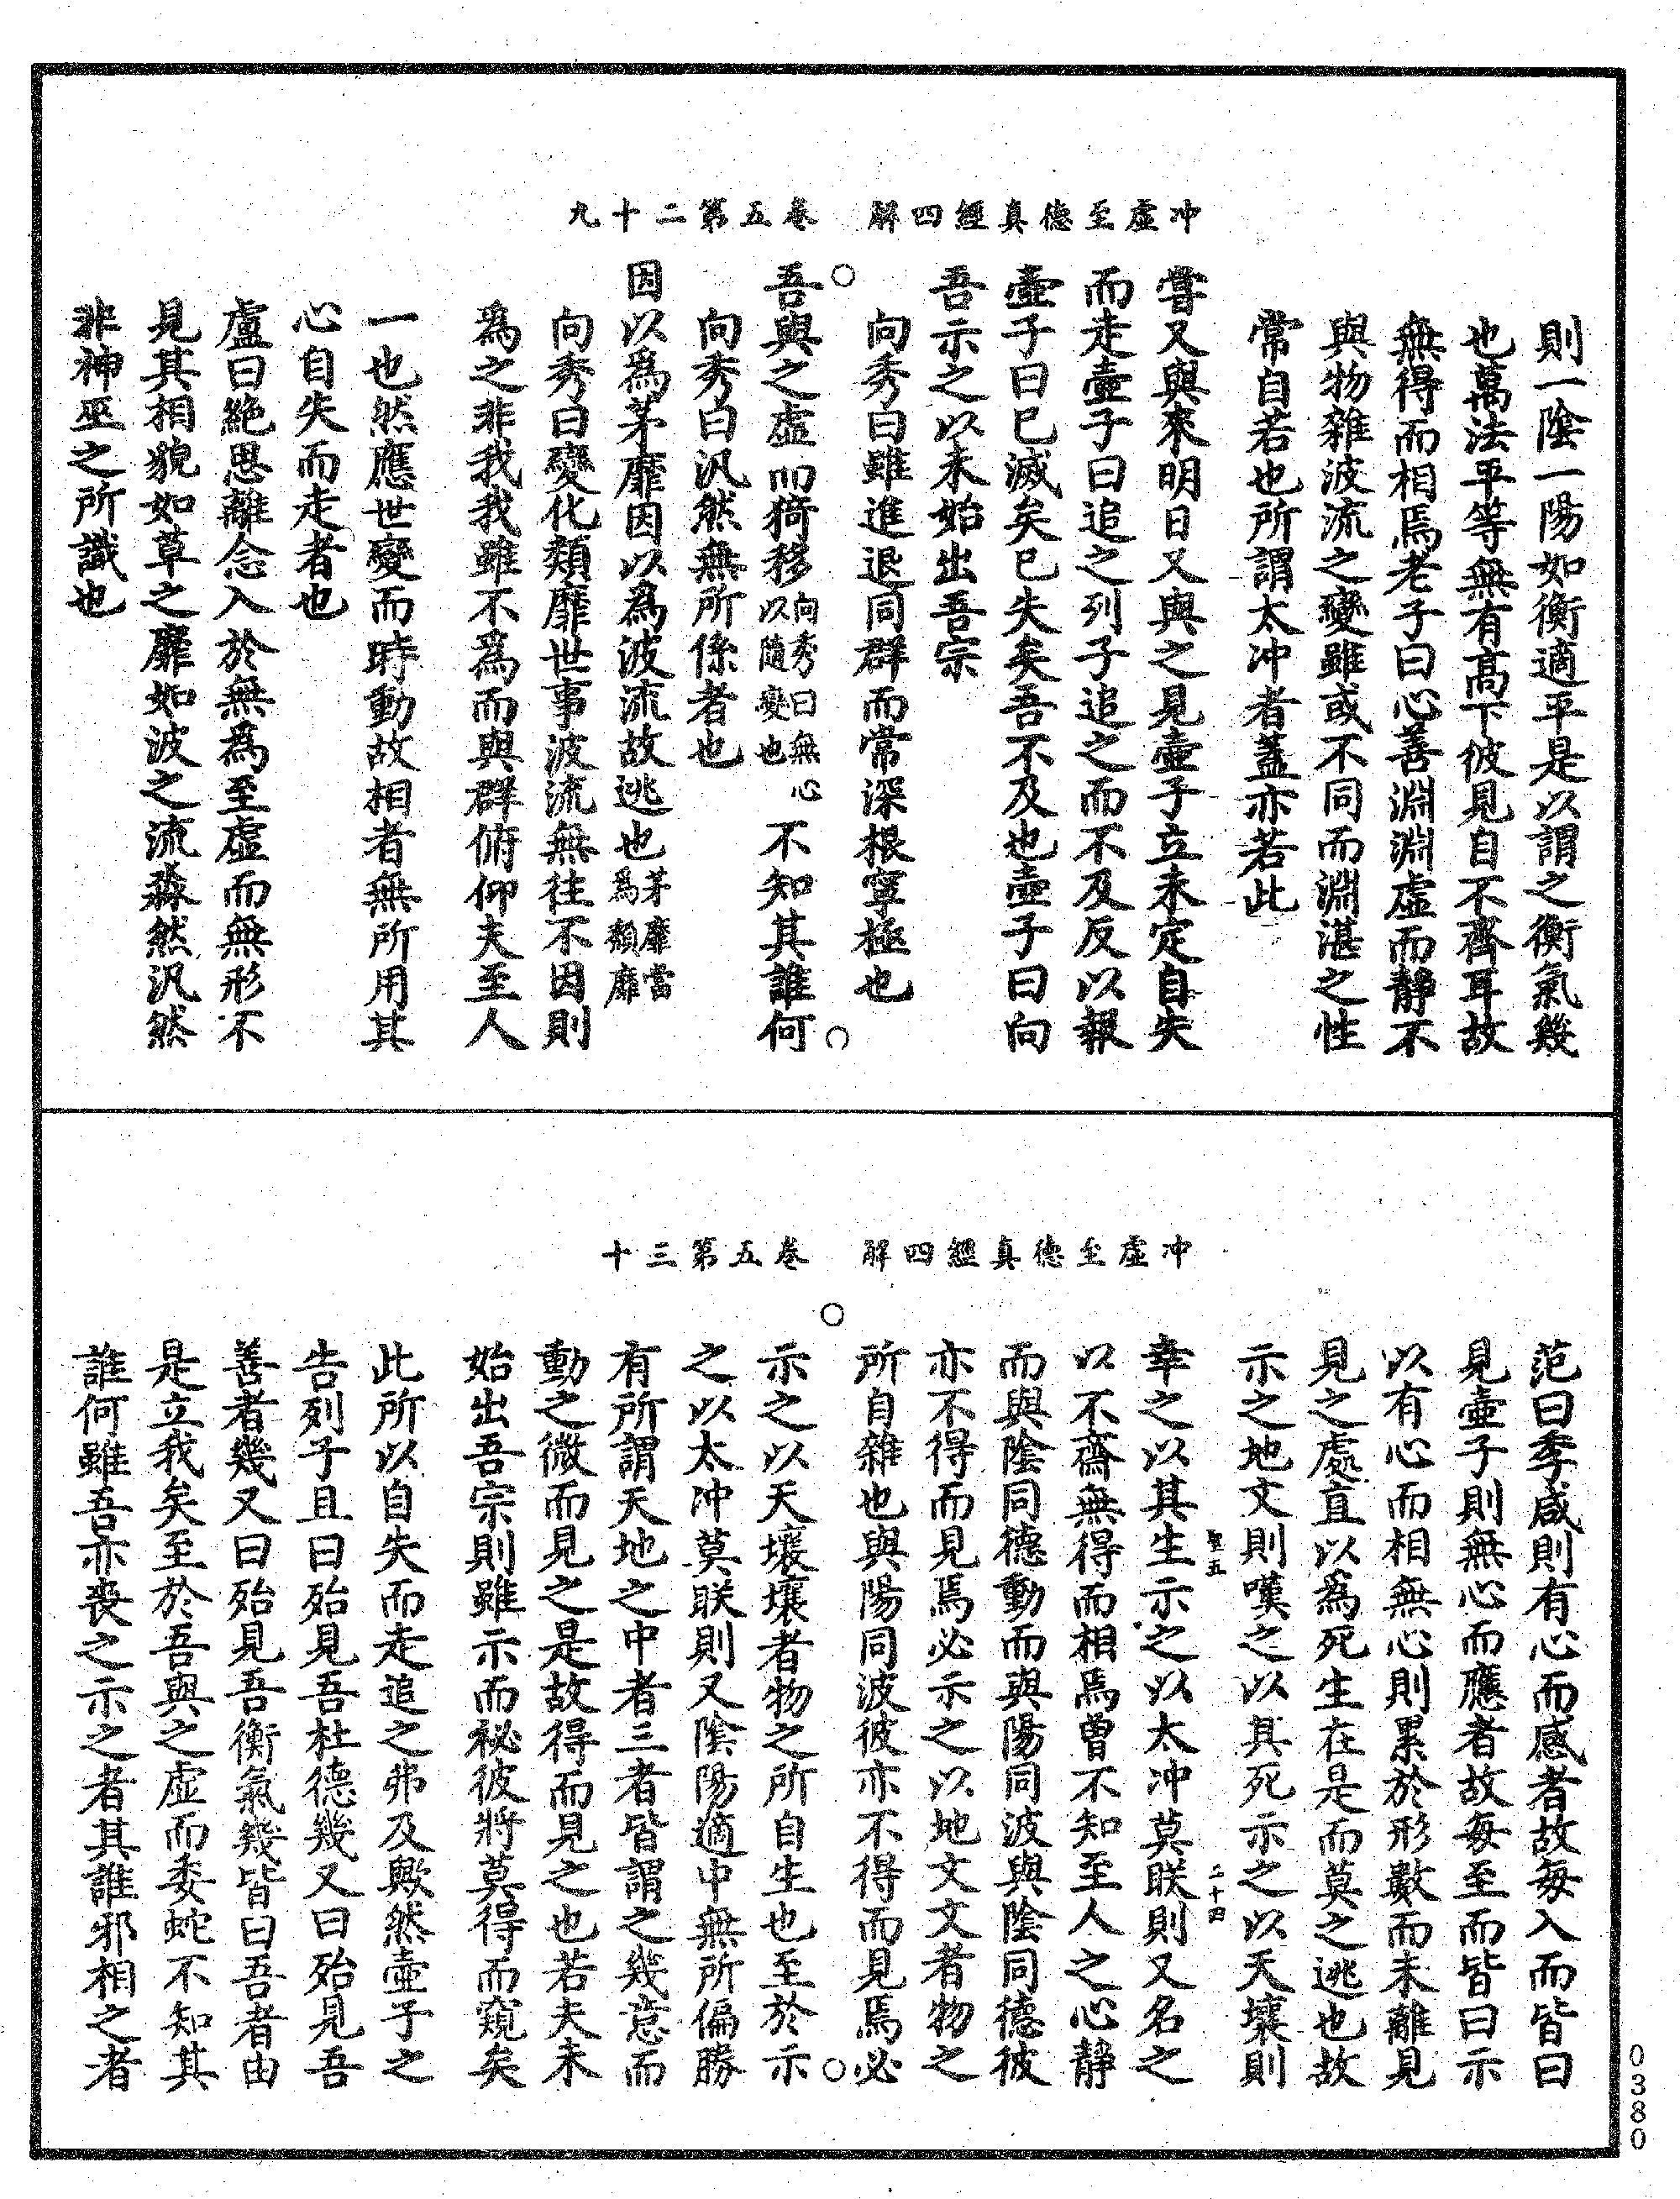 冲虛至德真經四解　卷五第二十九
則一陰一陽如衡適平是以謂之衡氣幾
也萬法平等無有高下彼見自不齊耳故
無得而相焉老子曰心善淵淵虛而靜不
與物雜波流之變雖或不同而淵湛之性
常自若也所謂太冲者蓋亦若此
嘗又與來明日又與之見壺子立未定自失
而走壺子曰追之列子追之而不及反以報
壺子曰已滅矣已失矣吾不及也壺子曰向
吾示之以未始出吾宗
向秀曰雖進退同群而常深根寧極也
吾與之虛而猗移向秀曰無心以隨變也不知其誰何
向秀曰汎然無所係者也
因以為茅靡因以為波流故逃也茅靡當為頹靡
向秀曰變化頹靡世事波流無往不因則
為之非我我雖不為而與群俯仰夫至人
一也然應世變而時動故相者無所用其
心自失而走者也
盧曰絕思離念入於無為至虛而無形不
見其相貌如草之靡如波之流淼然汎然
非神巫之所識也
冲虛至德真經四解　卷五第三十
范曰季咸則有心而感者故每入而皆曰
見壺子則無心而應者故每至而皆曰示
以有心而相無心則累於形數而未離見
見之處直以為死生在是而莫之逃也故
示之地文則嘆之以其死示之以天壤則
幸之以其生示之以太冲莫眹則又名之
以不齋無得而相焉曾不知至人之心靜
而與陰同德動而與陽同波與陰同德彼
亦不得而見焉必示之以地文文者物之
所自雜也與陽同波彼亦不得而見焉必
示之以天壤壤者物之所自生也至於示
之以太冲莫眹則又陰陽適中無所偏勝
有所謂天地之中者三者皆謂之幾意而
動之微而見之是故得而見之也若夫未
始出吾宗則雖示而祕彼將莫得而窺矣
此所以自失而走追之弗及歟然壺子之
告列子且曰殆見吾杜德幾又曰殆見吾
善者幾又曰殆見吾衡氣幾皆曰吾者由
是立我矣至於吾與之虛而委蛇不知其
誰何雖吾亦喪之示之者其誰邪相之者
聖五
二十四
0380